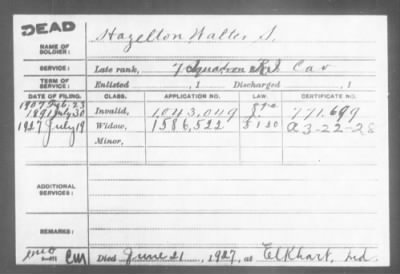 DEAD
NAME OF SOLDIER: Hazelton Walter S.
SERVICE: Late rank, 7 Squadron R.I. Cav
TERM OF SERVICE: Enlisted , 1 Discharged , 1
DATE OF FILING. CLASS. APPLICATION NO. LAW. CERTIFICATE NO.
1907 Feb. 23
1891 July 30 Invalid, 1,043,049 771.699
1927 July 19 Widow, 1,586,522 A 3-22-28
Minor,
ADDITIONAL SERVICES:
REMARKS:
Died June 21, 1927, at Elkhart, Ind.